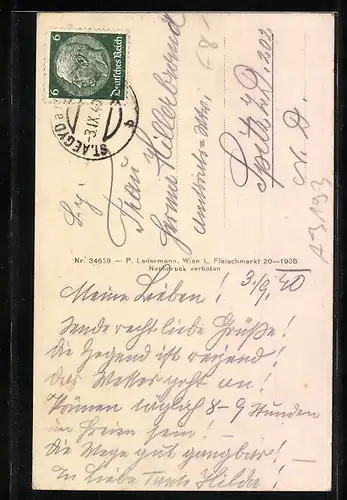 6 Deutsches Reich 6
ST. AEGYD
-3.IX.40
Frau
Hermine Hillebrand
Spitz a. D. 203
N. D.
68
A3193
Nr. 34659 — P. Ledermann, Wien I., Fleischmarkt 20—1938
Nachdruck verboten
3./9. 40
Meine Lieben!
Sende recht liebe Grüße!
Die Gegend ist reizend!
Das Wetter geht an!
Können täglich 8-9 Stunden
im Freien sein! —
Die Wege gut gangbar! —
In Liebe Tante Hilda!